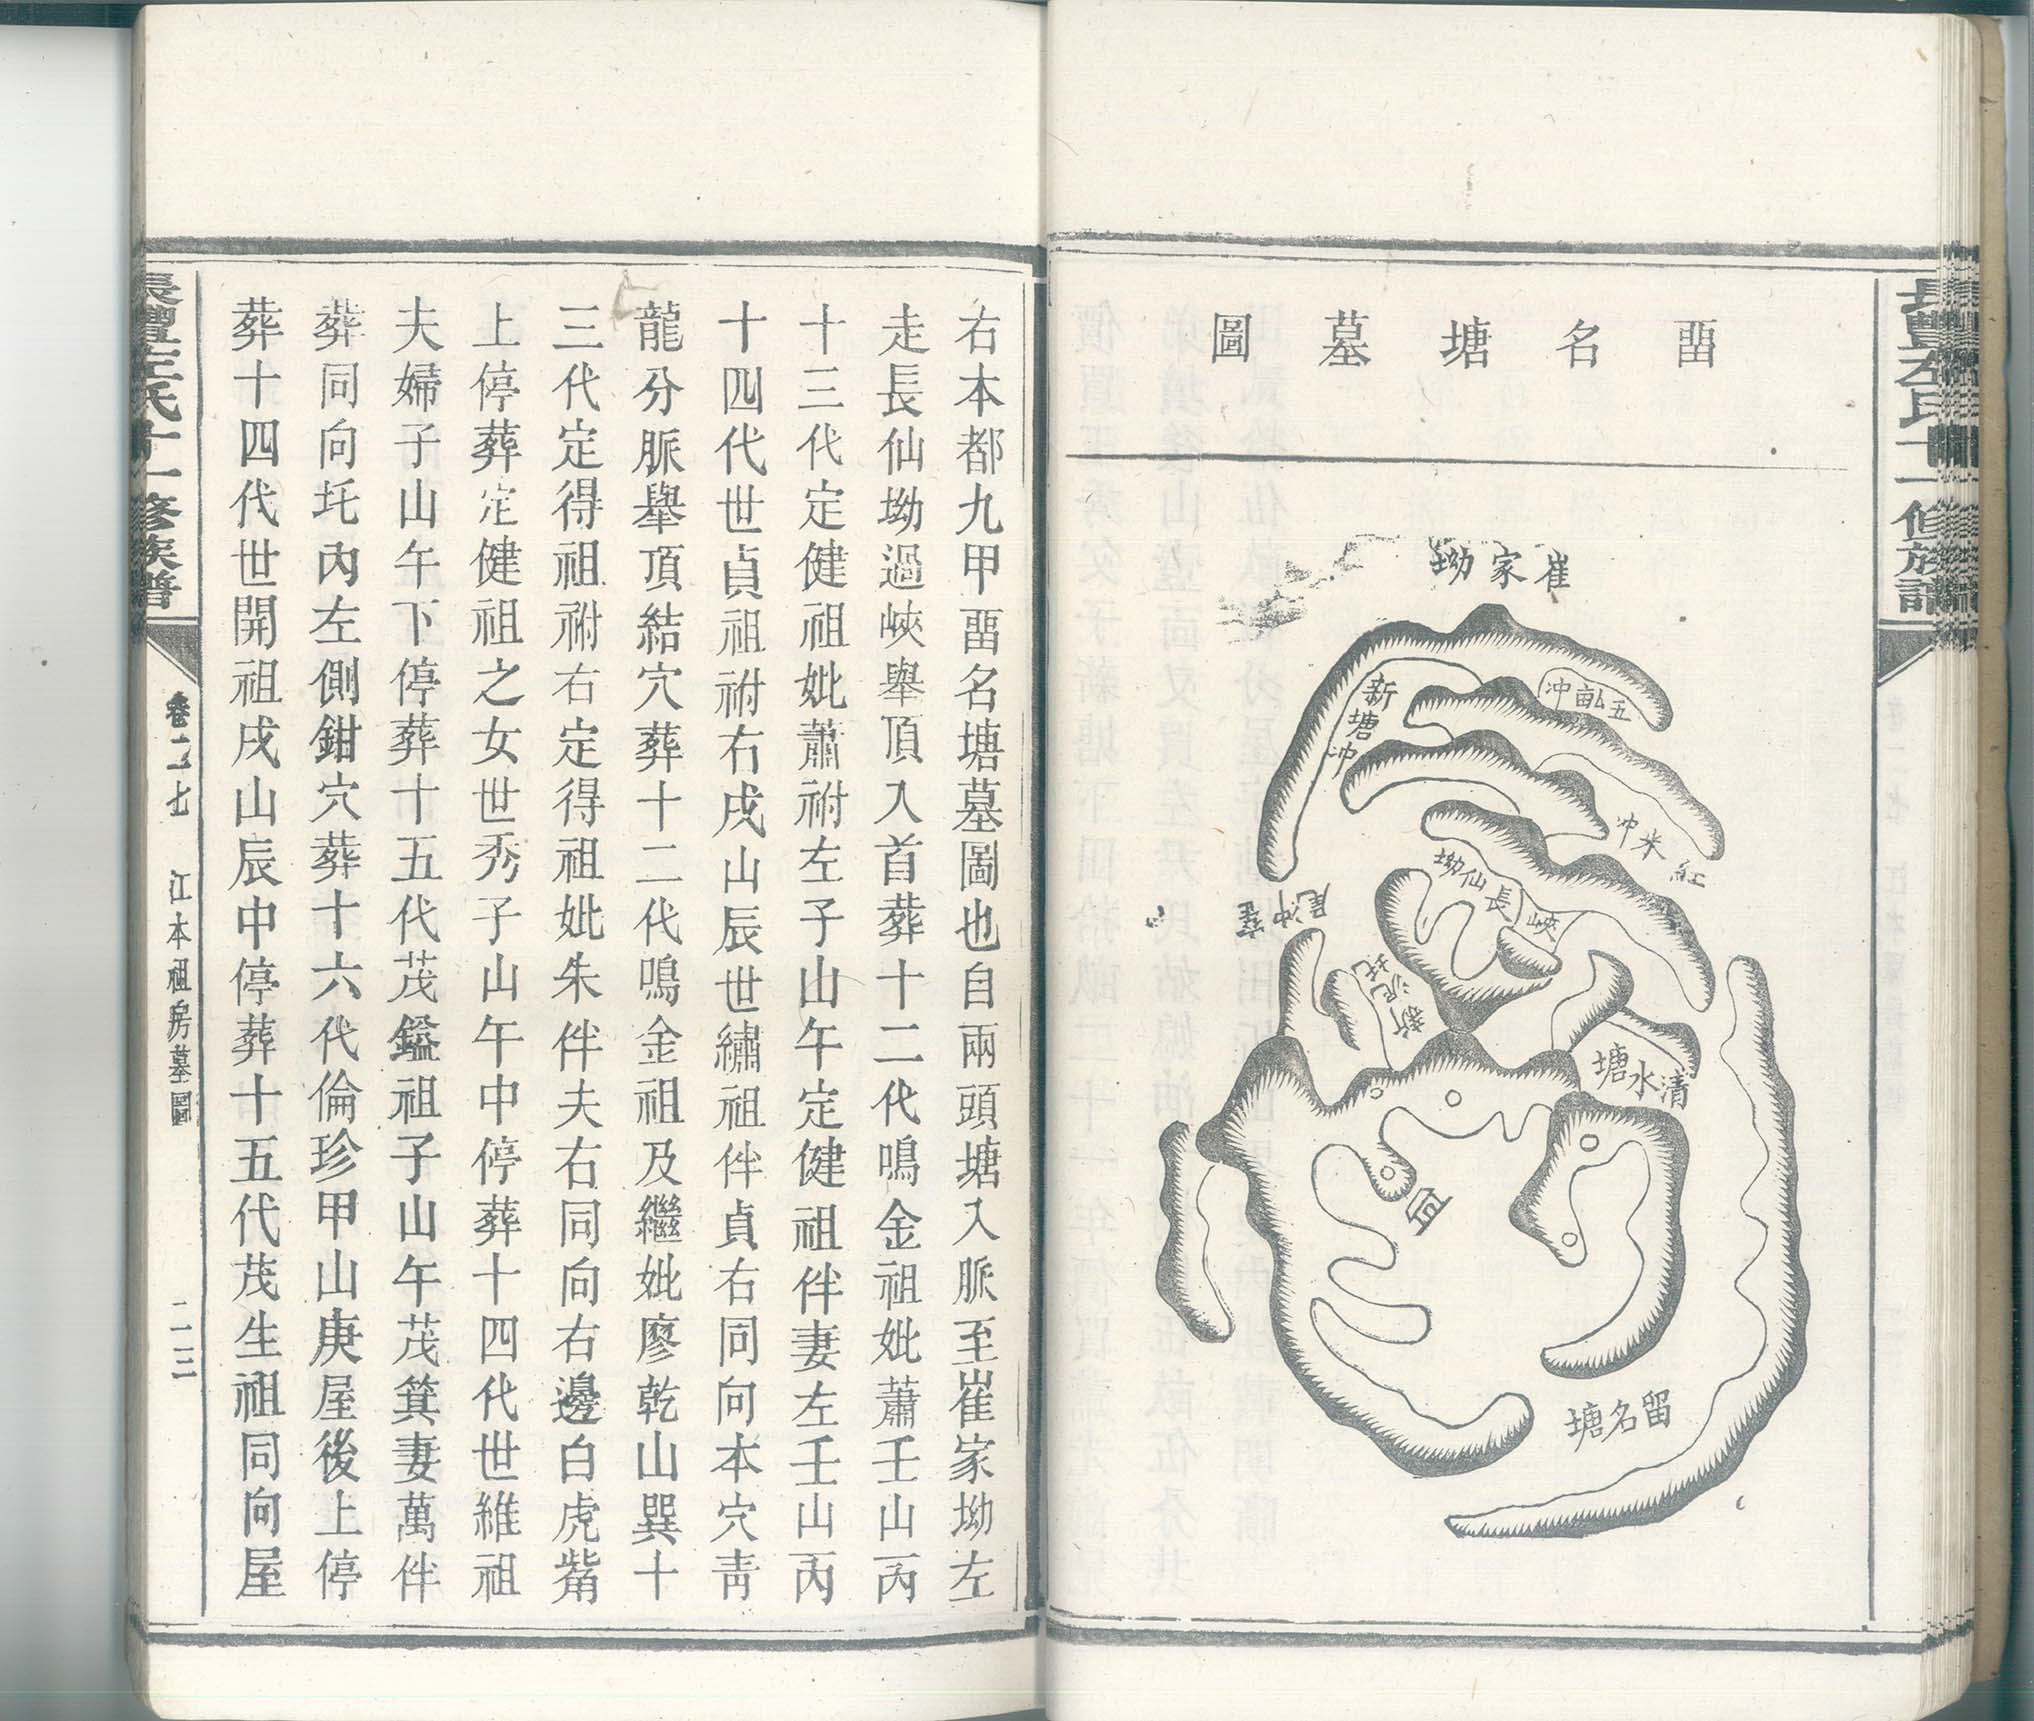 畱名塘墓圖
崔家坳
五畝冲
新塘冲
紅米冲
長仙坳
峽
新泥圫
清水塘
留名塘
右本都九甲畱名塘墓圖也自兩頭塘入脈至崔家坳左
走長仙坳過峽舉頂入首葬十二代鳴金祖妣蕭壬山丙
十三代定健祖妣蕭祔左子山午定健祖伴妻左壬山丙
十四代世貞祖祔右戌山辰世繡祖伴貞右同向本穴靑
龍分脈舉頂結穴葬十二代鳴金祖及繼妣廖乾山巽十
三代定得祖祔右定得祖妣朱伴夫右同向右邊白虎觜
上停葬定健祖之女世秀子山午中停葬十四代世維祖
夫婦子山午下停葬十五代茂鎰祖子山午茂箕妻萬伴
葬同向圫內左側鉗穴葬十六代倫珍甲山庚屋後上停
葬十四代世開祖戌山辰中停葬十五代茂生祖同向屋
長豐左氏十一修族譜
卷二七
江本祖房墓圖
二三